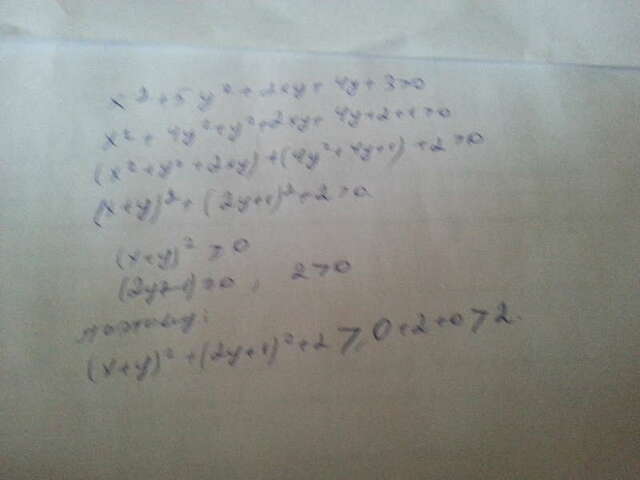 x²+5y²+2xy+4y+3>0
x²+4y²+y²+2xy+4y+2+1>0
(x²+y²+2xy)+(4y²+4y+1)+2>0
(x+y)²+(2y+1)²+2>0
(x+y)²≥0
(2y+1)²≥0, 2>0
поэтому:
(x+y)²+(2y+1)²+2≥0+2+0≥2.